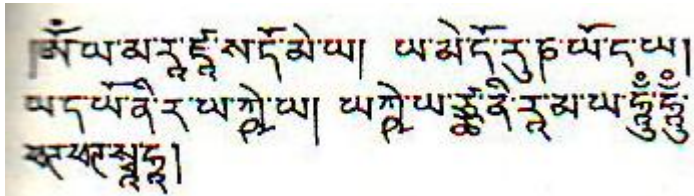 །ཨོཾ་ཡ་མ་རཱ་ཛཱ་ས་དོ་མེ་ཡ། ཡ་མེ་དོ་རུ་ཎ་ཡོ་ད་ཡ།
ཡ་ད་ཡོ་ནི་ར་ཡ་ཀྵེ་ཡ། ཡ་ཀྵེ་ཡ་ཙྪ་ནི་རཱ་མ་ཡ་ཧཱུྃ་ཧཱུྃ་
ཕཊ་ཕཊ་སྭཱ་ཧཱ།